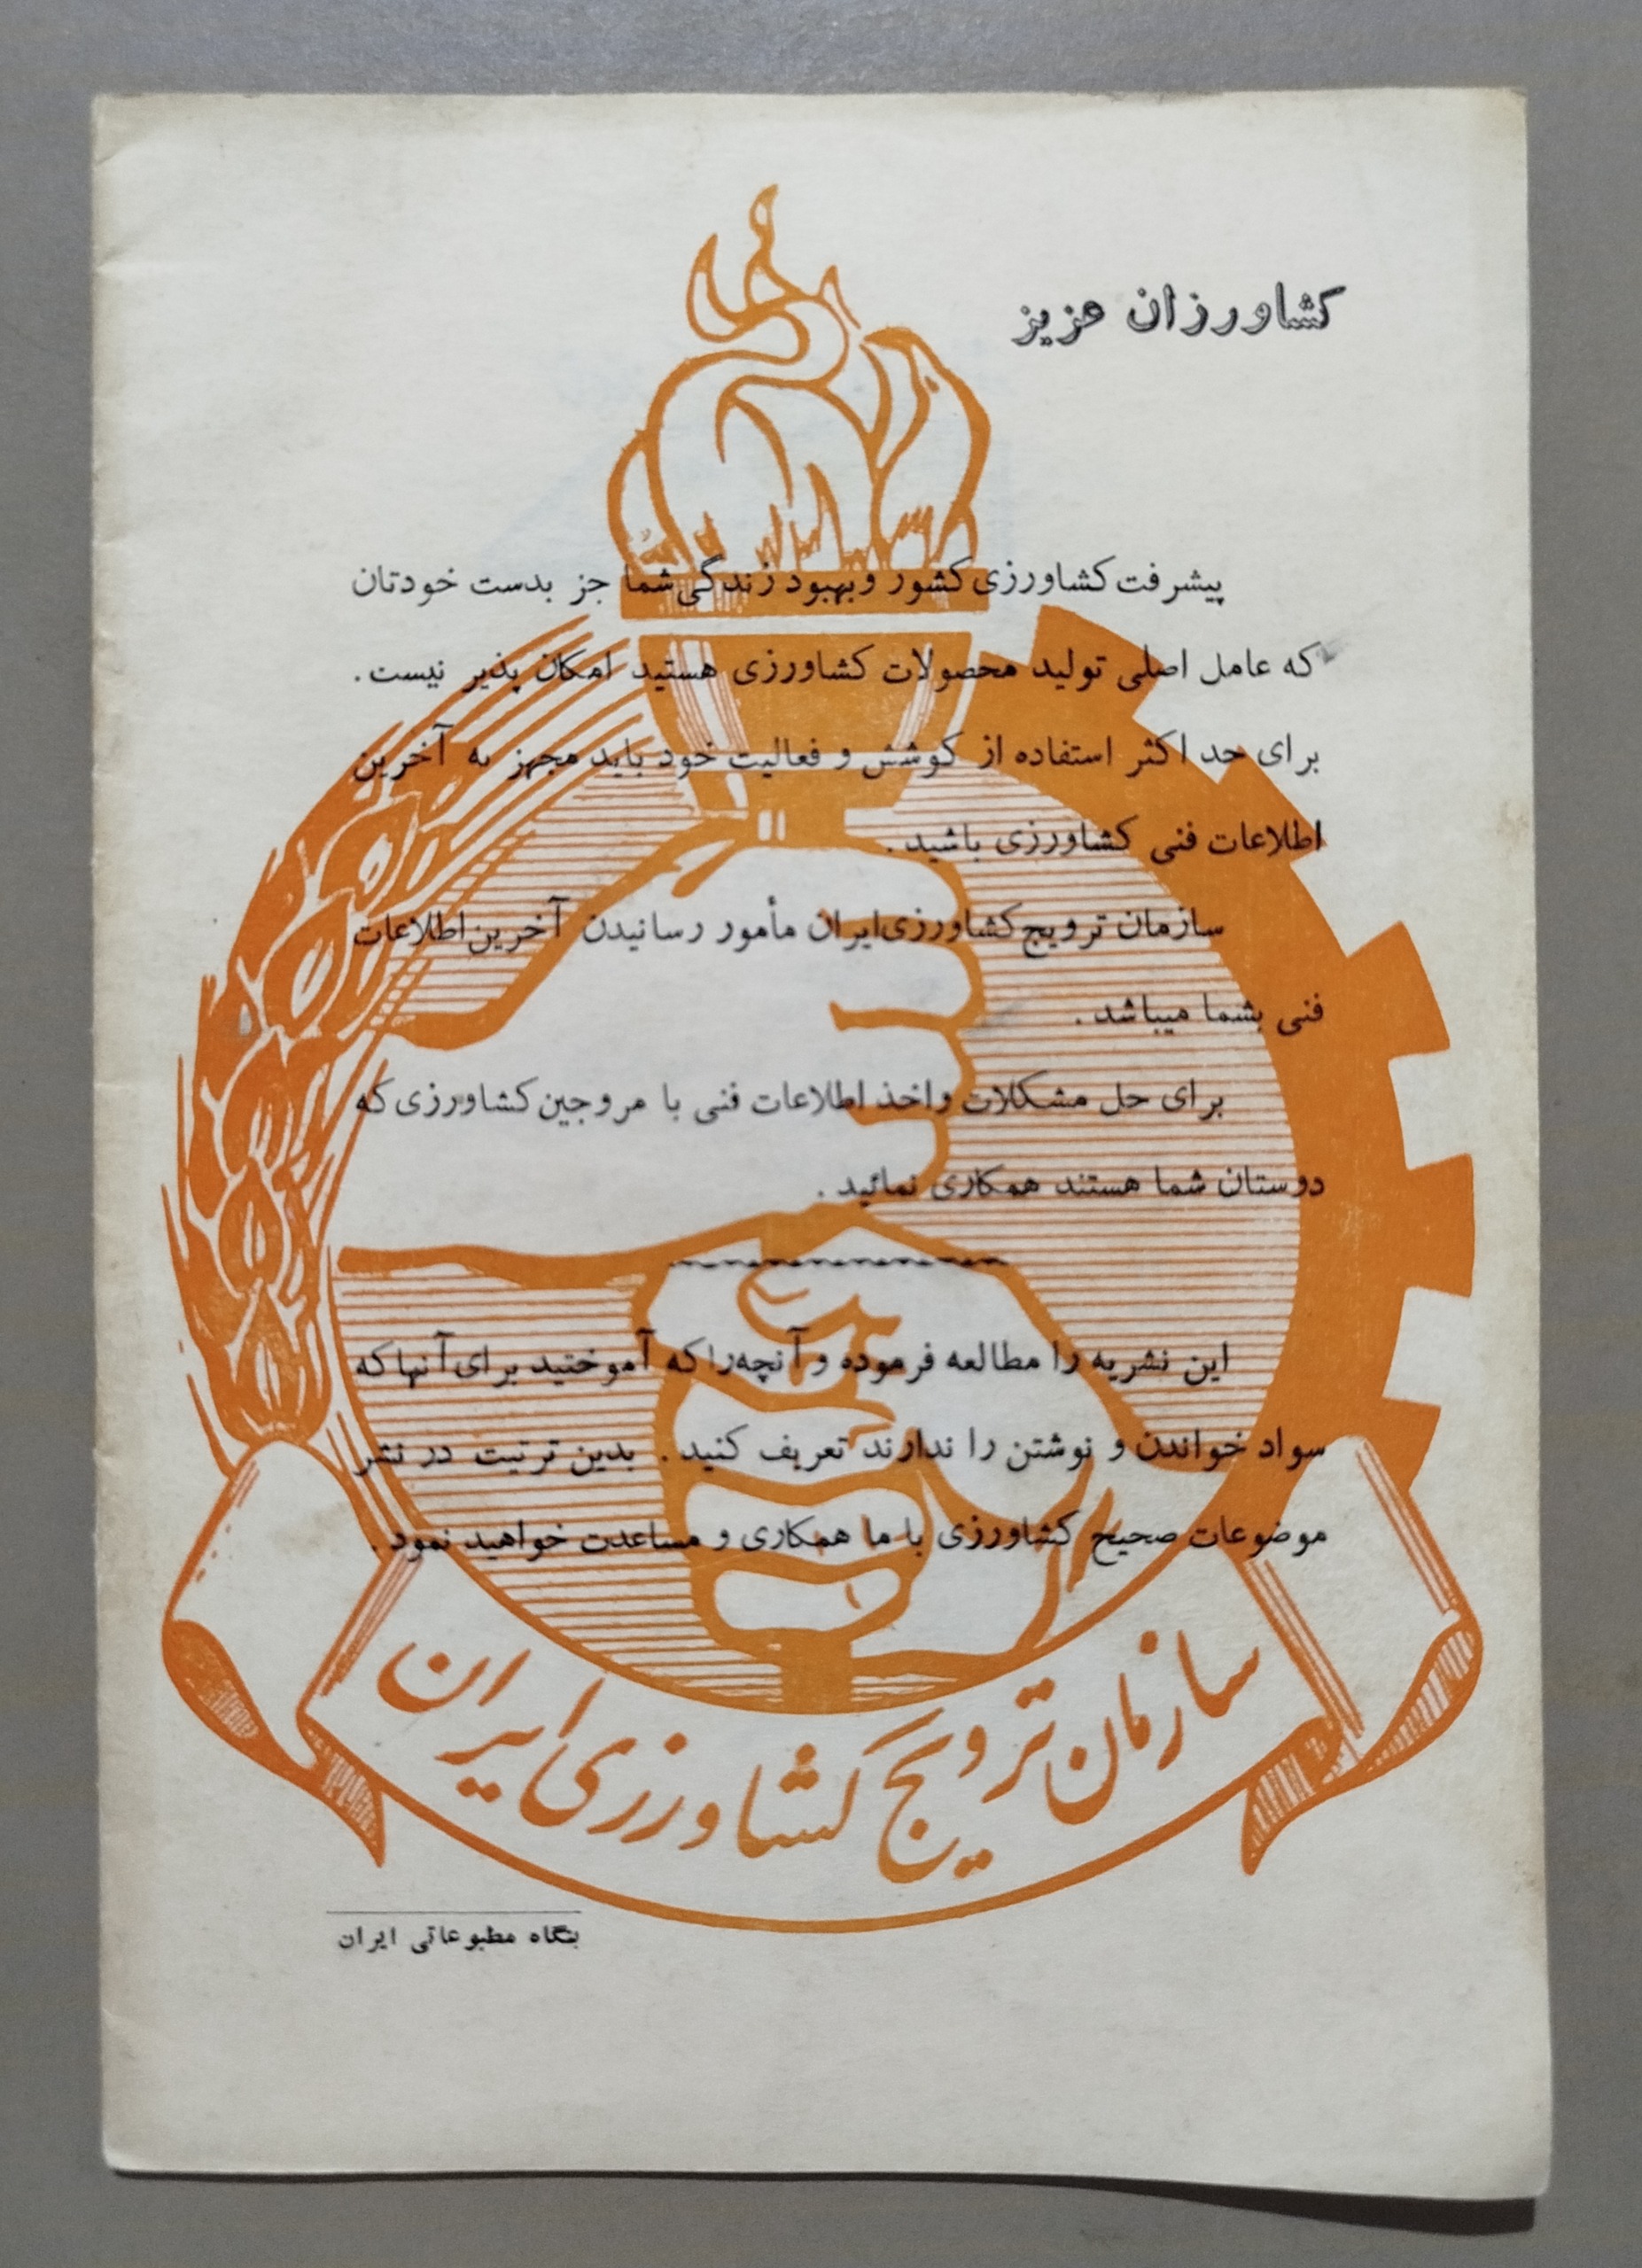 کشاورزان عزیز
پیشرفت کشاورزی کشور و بهبود زندگی شما جز بدست خودتان
که عامل اصلی تولید محصولات کشاورزی هستید امکان پذیر نیست .
برای حد اکثر استفاده از کوشش و فعالیت خود باید مجهز به آخرین
اطلاعات فنی کشاورزی باشید .
سازمان ترویج کشاورزی ایران مأمور رسانیدن آخرین اطلاعات
فنی بشما میباشد .
برای حل مشکلات و اخذ اطلاعات فنی با مروجین کشاورزی که
دوستان شما هستند همکاری نمائید .
این نشریه را مطالعه فرموده و آنچه را که آموختید برای آنها که
سواد خواندن و نوشتن را ندارند تعریف کنید . بدین ترتیت در نشر
موضوعات صحیح کشاورزی با ما همکاری و مساعدت خواهید نمود .
سازمان ترویج کشاورزی ایران
بنگاه مطبوعاتی ایران